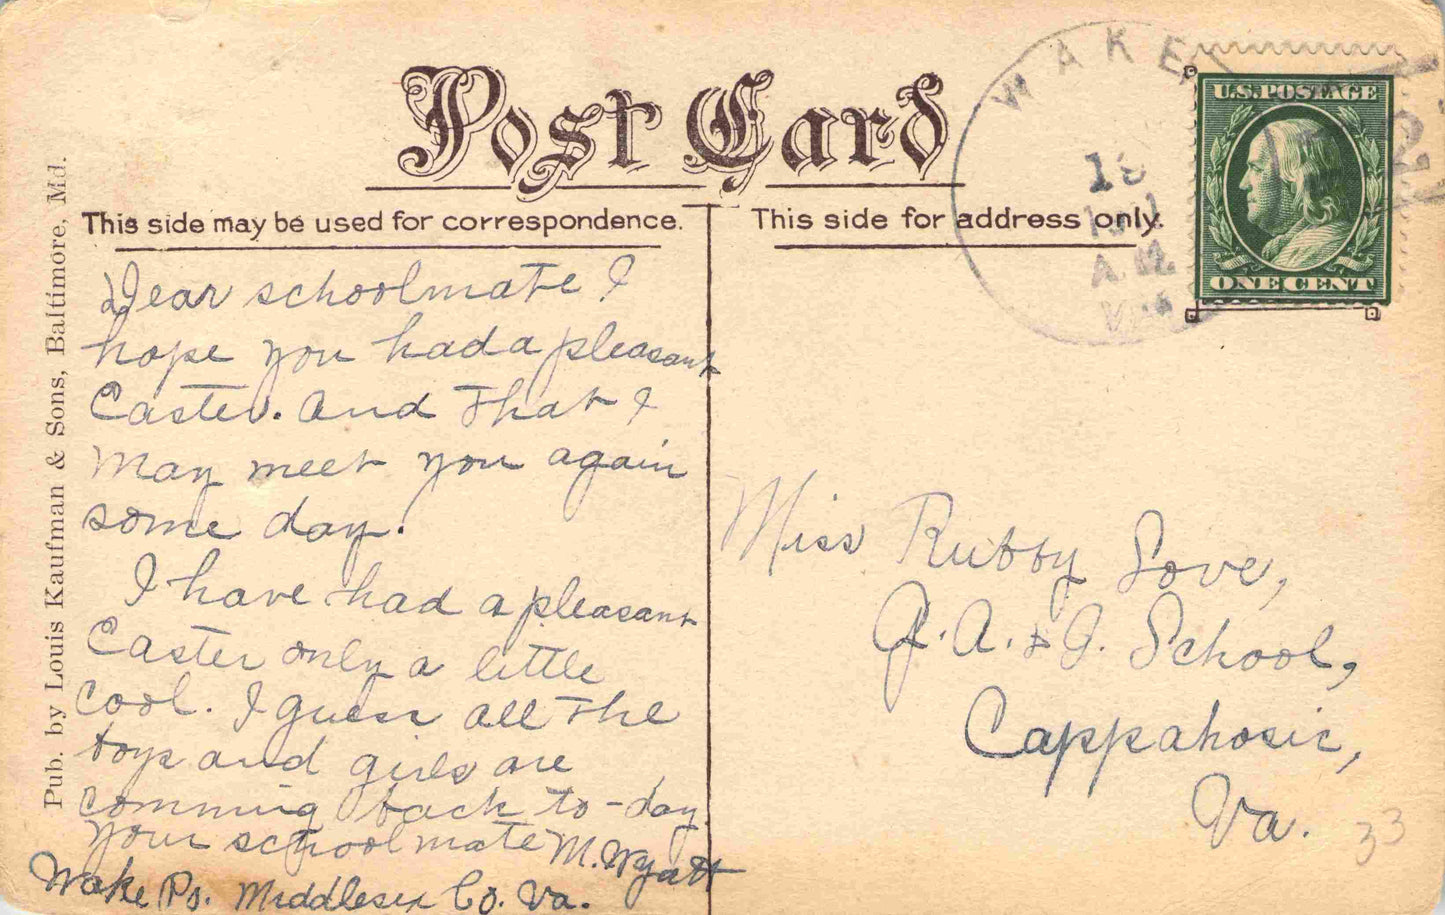 Post Card
This side may be used for correspondence.
This side for address only.
Pub. by Louis Kaufman & Sons, Baltimore, Md.
WAKE
19
A.M.
U.S. POSTAGE
ONE CENT
Dear schoolmate I
hope you had a pleasant
Easter. And that I
may meet you again
some day.
I have had a pleasant
Easter only a little
cool. I guess all the
boys and girls are
comming back to-day
Your schoolmate M. Wyatt
Wake Po. Middlesex Co. Va.
Miss Rubby Love,
G. A. & I. School,
Cappahosic,
Va.
33